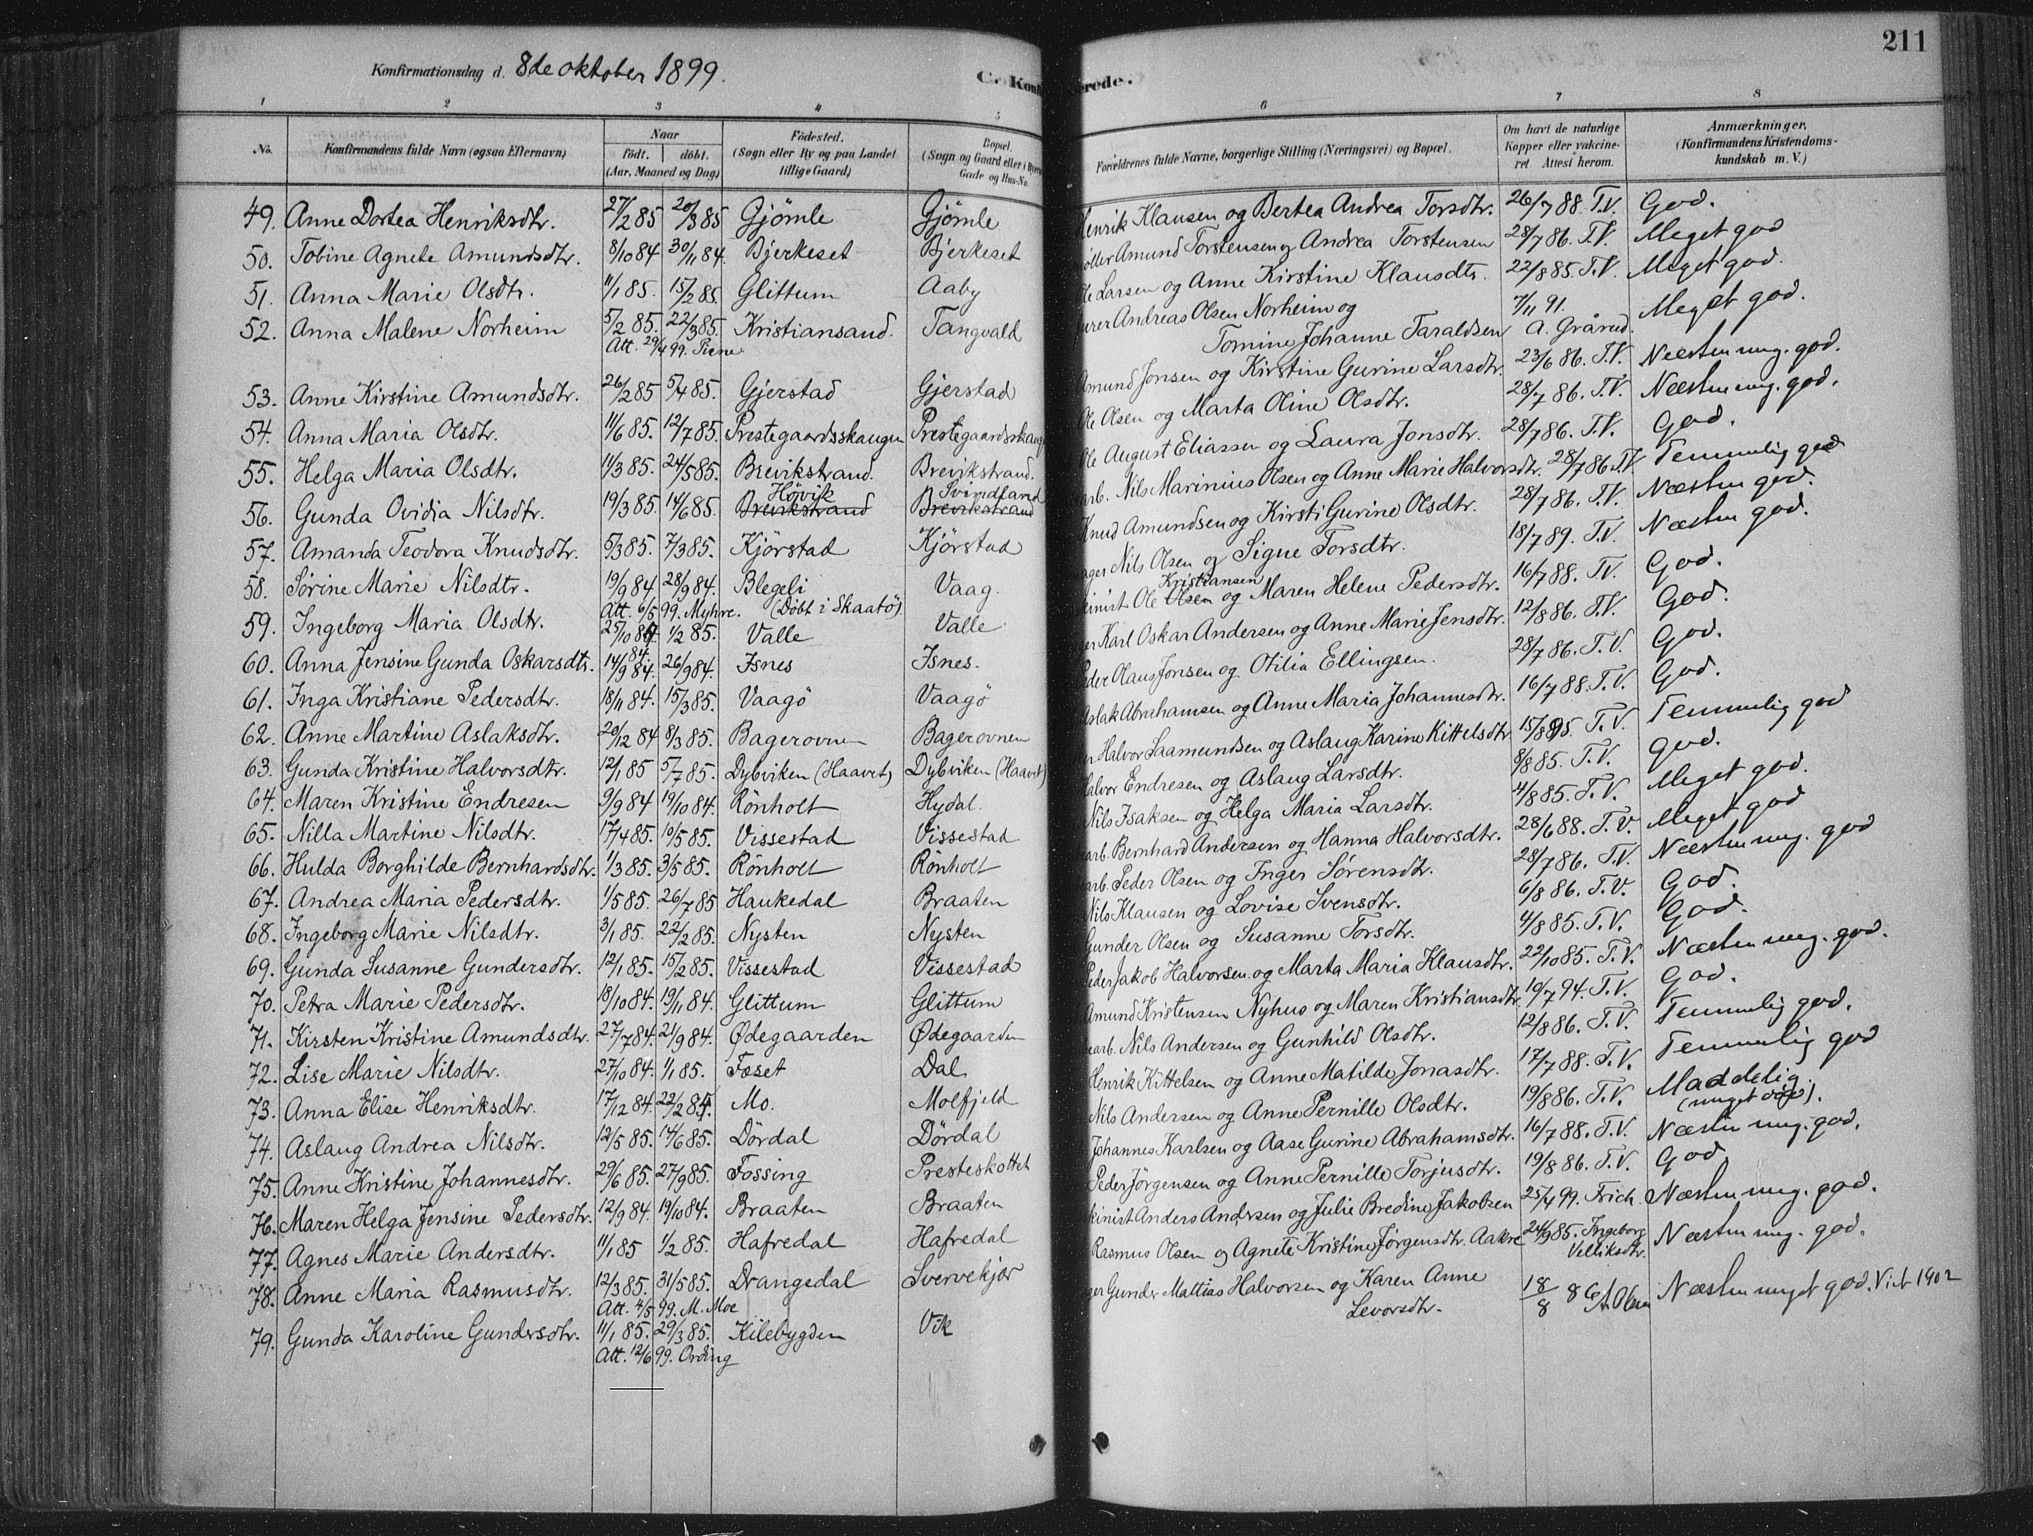 211
Konfirmationsdag d. 8de oktober 1899.
C. Konfi
rede.
1 2 3 4 5 6 7 8
No.
Konfirmandens fulde Navn (ogsaa Efternavn)
Naar
födt. döbt.
(Aar, Maaned og Dag)
Födested.
(Sogn eller By og paa Landet
tillige Gaard)
Bopæl.
(Sogn og Gaard eller i Byerne
Gade og Hus-No.
Forældrenes fulde Navne, borgerlige Stilling (Næringsvei) og Bopæl.
Om havt de naturlige
Kopper eller vakcine-
ret Attest herom.
Anmærkninger.
(Konfirmandens Kristendoms-
kundskab m. V.)
49. Anne Dortea Henriksdtr. 27/2 85 20/3 85 Gjömle Gjömle Henrik Klausen og Bertea Andrea Torsdtr. 26/7 88. T.V. God.
50. Tobine Agnete Amundsdtr. 8/10 84 30/11 84. Bjerkeset Bjerkeset Amund Torstensen og Andrea Torstensen 28/7 86. T.V. Meget god
51. Anna Marie Olsdtr. 11/1 85. 15/2 85. Glittum Aaby Ole Larsen og Anne Kirstine Klausdtr. 22/8 85. T.V. Meget god.
52. Anna Malene Norheim 5/2 85. 22/3 85. Kristiansand. Tangvald Andreas Olsen Norheim og 7/11 91. Meget god.
Att. 29/4 99. Tomine Johanne Taraldsen A. Grårud.
53. Anne Kirstine Amundsdtr. 26/2 85 5/4 85. Gjerstad Gjerstad Amund Jonsen og Kirstine Gurine Larsdtr. 23/6 86. T.V. Næsten mg. god.
54. Anna Maria Olsdtr. 11/6 85. 12/7 85. Prestegaardsskaugen Prestegaardsskaug Ole Olsen og Marta Oline Olsdtr. 28/7 86. T.V. Næsten mg. god.
55. Helga Maria Olsdtr. 11/3 85. 24/5 85. Brevikstrand. Brevikstrand. Ole August Eliassen og Laura Jonsdtr. 28/7 86. T.V. God.
Hövik Svindland
56. Gunda Ovidia Nilsdtr. 19/3 85. 14/6 85. Brevikstrand Brevikstrand arb. Nils Marinius Olsen og Anne Marie Halvorsdtr. 28/7 86. T.V. Temmelig god
57. Amanda Teodora Knudsdtr. 5/3 85. 7/3 85. Kjörstad Kjörstad Knud Amundsen og Kirsti Gurine Olsdtr. 28/7 86. T.V. Næsten god.
58. Sörine Marie Nilsdtr. 19/9 84 28/9 84. Blegeli Vaag. Nils Olsen og Signe Torsdtr. 18/7 89. T.V. Næsten god.
Att. 6/5 99. Myhre. (Döbt i Skaatö) Kristiansen
59. Ingeborg Maria Olsdtr. 25/10 84 1/2 85. Valle Valle Ole Olsen og Maren Helene Pedersdtr. 16/7 88. T.V. God.
60. Anna Jensine Gunda Oskarsdtr. 14/9 84. 26/9 84. Isnes Isnes. Karl Oskar Andersen og Anne Marie Jensdtr. 12/8 86. T.V. God.
61. Inga Kristiane Pedersdtr. 18/11 84. 15/3 85. Vaagö Vaagö Peder Olaus Jonsen og Otilia Ellingsen. 28/7 86. T.V. God.
62. Anne Martine Aslaksdtr. 20/12 84 8/3 85. Bagerovnen Bagerovnen Aslak Abrahamsen og Anne Maria Johannesdtr. 16/7 88. T.V. God.
63. Gunda Kristine Halvorsdtr. 12/1 85 5/7 85. Dybviken (Haavet) Dybviken (Haavet) Halvor Saamundsen og Aslaug Karine Kittelsdtr 15/8 95. T.V. Temmelig god
64. Maren Kristine Endresen 9/9 84 19/10 84. Rönholt Hydal. Halvor Endresen og Aslaug Larsdtr. 8/8 85. T.V. god.
65. Nilla Martine Nilsdtr. 17/4 85. 10/5 85. Vissestad Vissestad Nils Isaksen og Helga Maria Larsdtr. 4/8 85. T.V. Meget god.
66. Hulda Borghilde Bernhardsdtr. 1/3 85. 3/5 85. Rönholt Rönholt arb. Bernhard Andersen og Hanna Halvorsdtr. 28/6 88. T.V. Meget god
67. Andrea Maria Pedersdtr. 1/5 85. 26/7 85 Haukedal Braaten arb. Peder Olsen og Inger Sörensdtr. 28/7 86. T.V. Næsten mg. god
68. Ingeborg Marie Nilsdtr. 3/1 85. 22/2 85. Nysten Nysten Nils Klausen og Lovise Svensdtr. 6/8 86. T.V. God.
69. Gunda Susanne Gundersdtr. 12/1 85. 15/2 85. Vissestad Vissestad Gunder Olsen og Susanne Torsdtr. 4/8 85. T.V. God.
70. Petra Marie Pedersdtr. 18/10 84. 19/11 84. Glittum Glittum Peder Jakob Halvorsen og Marta Maria Klausdtr. 22/10 85. T.V. Næsten mg. god.
71. Kirsten Kristine Amundsdtr. 27/7 84. 21/9 84. Ødegaarden Ødegaarden Amund Kristensen Nyhus og Maren Kristiansdtr. 19/7 94. T.V. God.
72. Lise Marie Nilsdtr. 27/10 84. 1/1 85. Fæset Dal arb. Nils Andersen og Gunhild Olsdtr. 12/8 86. T.V. Temmelig god.
73. Anna Elise Henriksdtr. 17/12 84. 22/2 85. Mo. Molfjeld Henrik Kittelsen og Anne Matilde Jonasdtr. 17/7 88. T.V. Temmelig god
74. Aslaug Andrea Nilsdtr. 12/5 85. 14/6 85. Dördal Dördal Nils Andersen og Anne Pernille Olsdtr. 19/8 86. T.V. Maadelig.
75. Anne Kristine Johannesdtr. 29/6 85. 27/9 85. Fossing Presteskottet Johannes Karlsen og Aase Gurine Abrahamsdtr. 16/7 88. T.V. Næsten mg. god.
76. Maren Helga Jensine Pedersdtr. 12/9 84. 19/10 84. Braaten Braaten Peder Jörgensen og Anne Pernille Torjusdtr. 19/8 86. T.V. God
77. Agnes Marie Andersdtr. 11/1 85 1/2 85. Hafredal Hafredal Anders Andersen og Julie Bredine Jakobsen 25/4 99. Frich. Næsten mg. god.
78. Anne Maria Rasmusdtr. 12/3 85. 31/5 85. Drangedal Svervekjær Rasmus Olsen og Agnete Kristine Jörgensdtr. Aakre 24/9 85. Ingeborg Velliksdtr. Næsten mg. god.
Att. 4/5 99. M. Moe
79. Gunda Karoline Gundersdtr. 11/1 85. 29/3 85. Kilebygden Vik Gunder Mattias Halvorsen og Karen Anne Levorsdtr. 18/8 86 A. Olsen Næsten meget god. Vict 1902
Att. 12/6 99. Ording